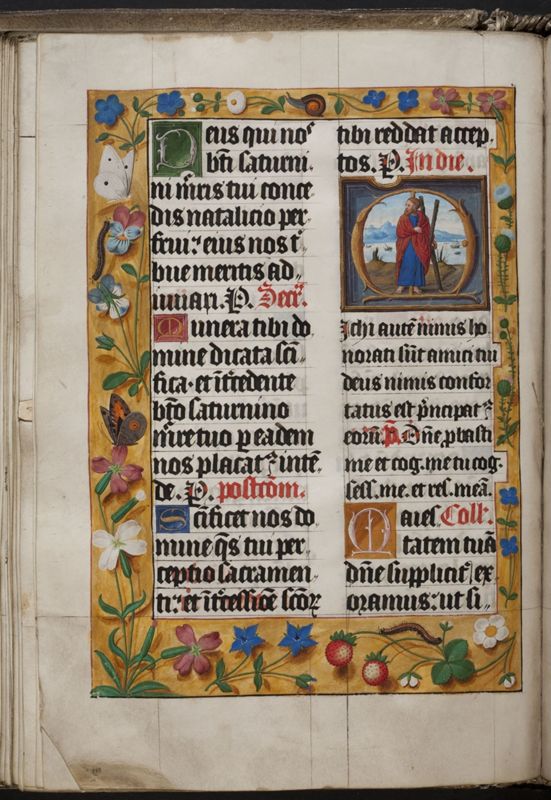 Deus qui nos
bti saturni
ni mris tui conce
dis natalicio per
frui: eius nos t
bue meritis ad
iuuari. P. Secr.
Munera tibi do
mine dicata sci
fica. et itcedente
bto saturnino
mre tuo p eadem
nos placat intē
de. P. postcōm.
Scificet nos do
mine qs tui per
ceptio sacramen
ti: et itcessiōe scōꝝ
tibi reddat accep
tos. P. In die.
Michi autē nimis ho
norati sūt amici tui
deus nimis confor
tatus est pncipat
eorū. P. Dñe pbasti
me et cog. me tu cog.
sess. me. et res. meā.
Maies Coll.
tatem tuā
dñe supplicit ex
oramus: ut si